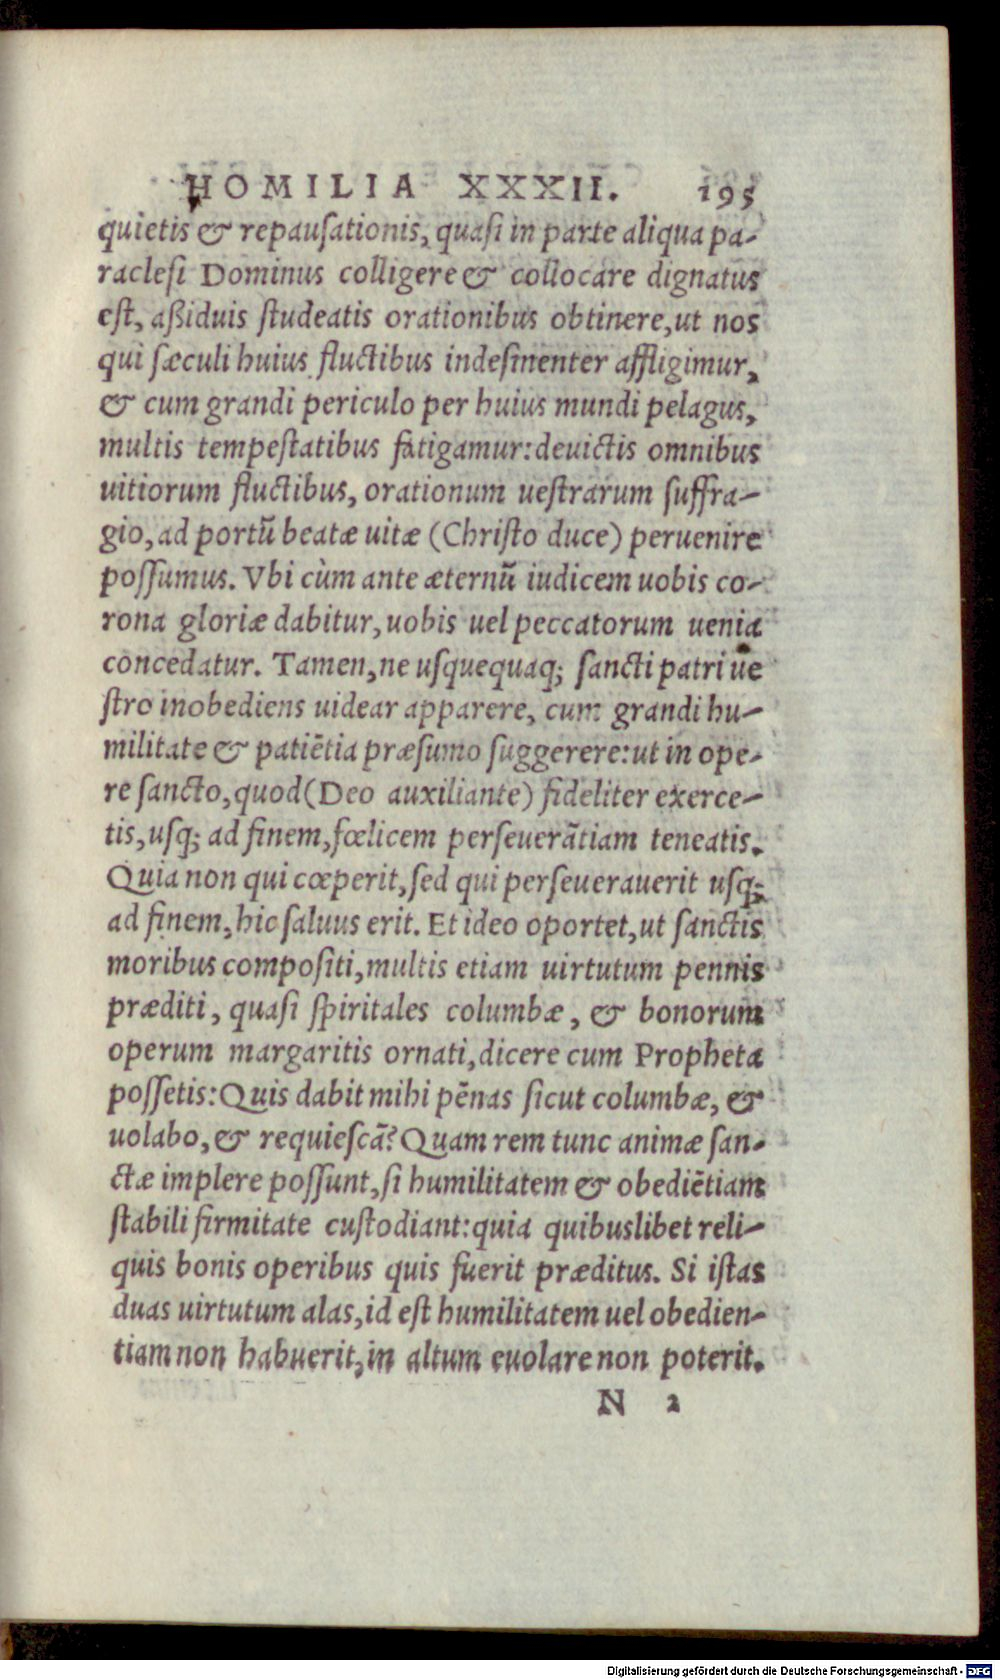 HOMILIA XXXII. 195
quietis & repausationis, quasi in parte aliqua pa-
raclesi Dominus colligere & collocare dignatus
est, aßiduis studeatis orationibus obtinere, ut nos
qui sæculi huius fluctibus indesinenter affligimur,
& cum grandi periculo per huius mundi pelagus,
multis tempestatibus fatigamur: deuictis omnibus
uitiorum fluctibus, orationum uestrarum suffra-
gio, ad portũ beatæ uitæ (Christo duce) peruenire
possumus. Vbi cùm ante æternũ iudicem uobis co-
rona gloriæ dabitur, uobis uel peccatorum uenia
concedatur. Tamen, ne usquequaq; sancti patri ue
stro inobediens uidear apparere, cum grandi hu-
militate & patiẽtia præsumo suggerere: ut in ope-
re sancto, quod (Deo auxiliante) fideliter exerce-
tis, usq; ad finem, fœlicem perseuerãtiam teneatis.
Quia non qui cœperit, sed qui perseuerauerit usq;
ad finem, hic saluus erit. Et ideo oportet, ut sanctis
moribus compositi, multis etiam uirtutum pennis
præditi, quasi spiritales columbæ, & bonorum
operum margaritis ornati, dicere cum Propheta
possetis: Quis dabit mihi pẽnas sicut columbæ, &
uolabo, & requiescã? Quam rem tunc animæ san-
ctæ implere possunt, si humilitatem & obediẽtiam
stabili firmitate custodiant: quia quibuslibet reli-
quis bonis operibus quis fuerit præditus. Si istas
duas uirtutum alas, id est humilitatem uel obedien-
tiam non habuerit, in altum euolare non poterit.
N 2
Digitalisierung gefördert durch die Deutsche Forschungsgemeinschaft - DFG